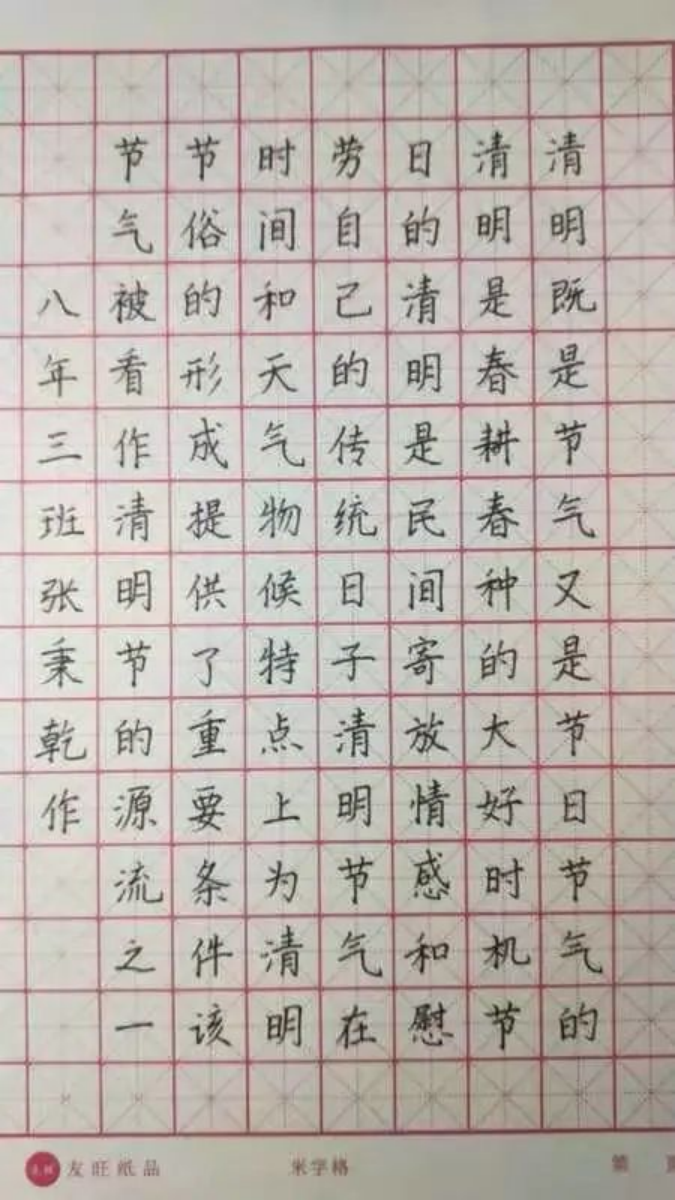 清明既是节气又是节日节气的
清明是春耕春种的大好时机节
日的清明是民间寄放情感和慰
劳自己的传统日子清明节气在
时间和天气物候特点上为清明
节俗的形成提供了重要条件该
节气被看作清明节的源流之一
八年三班张秉乾作
友旺纸品
米字格
第